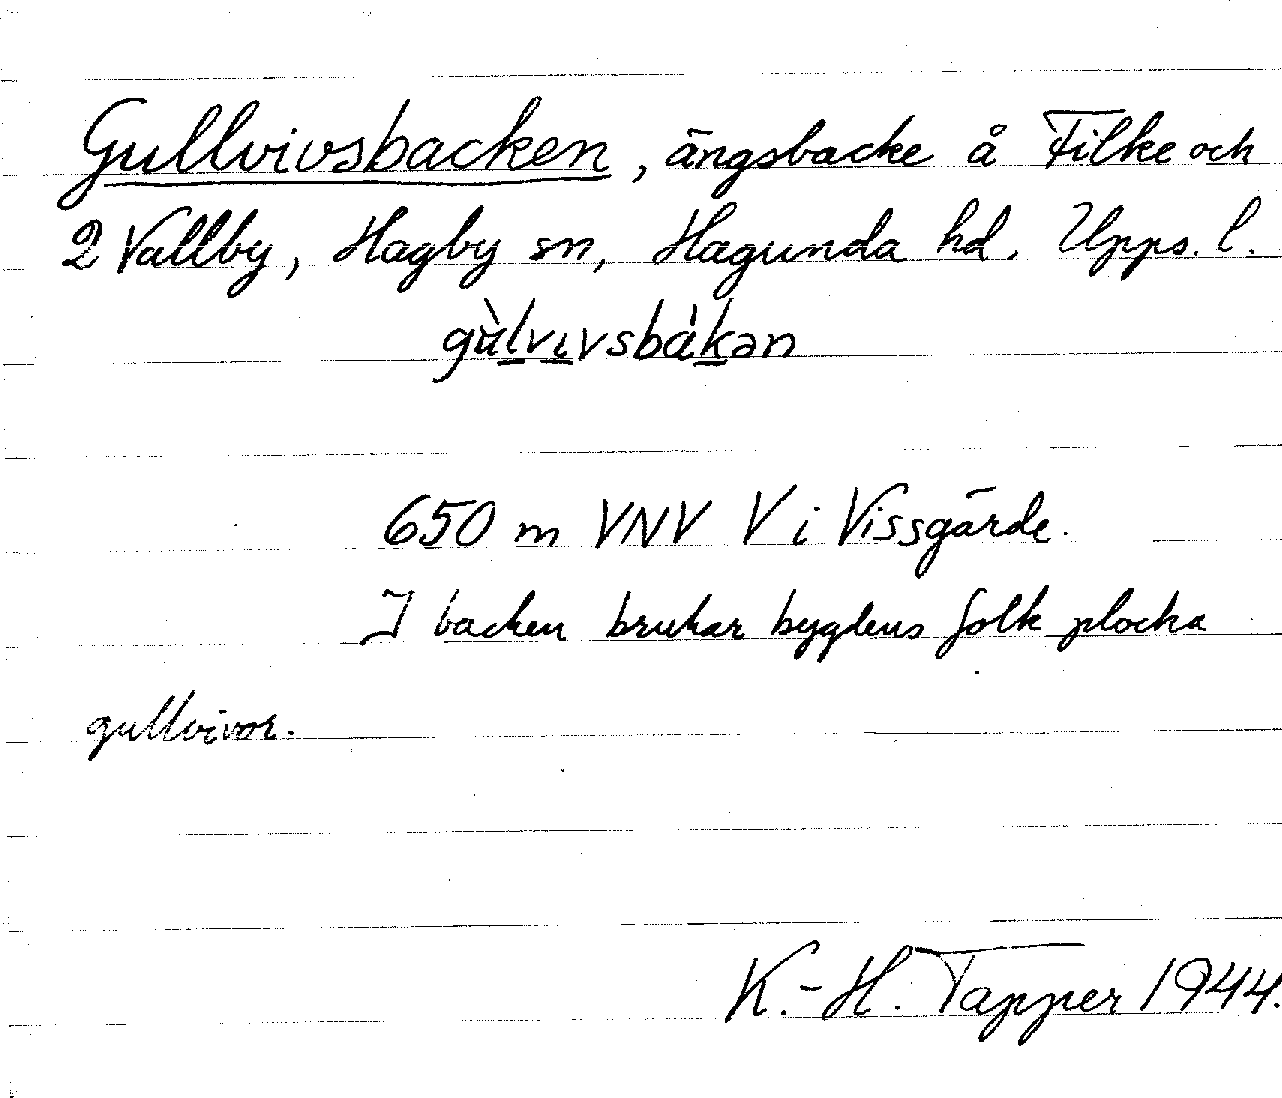 Gullvivsbacken, ängsbacke å Filke och
2 Vallby, Hagby sn, Hagunda hd. Upps. l.
gùlvivsbákən
650 m VNV V i Vissgärde.
I backen brukar bygdens folk plocka
gullvivor.
K.-H. Tapper 1944.